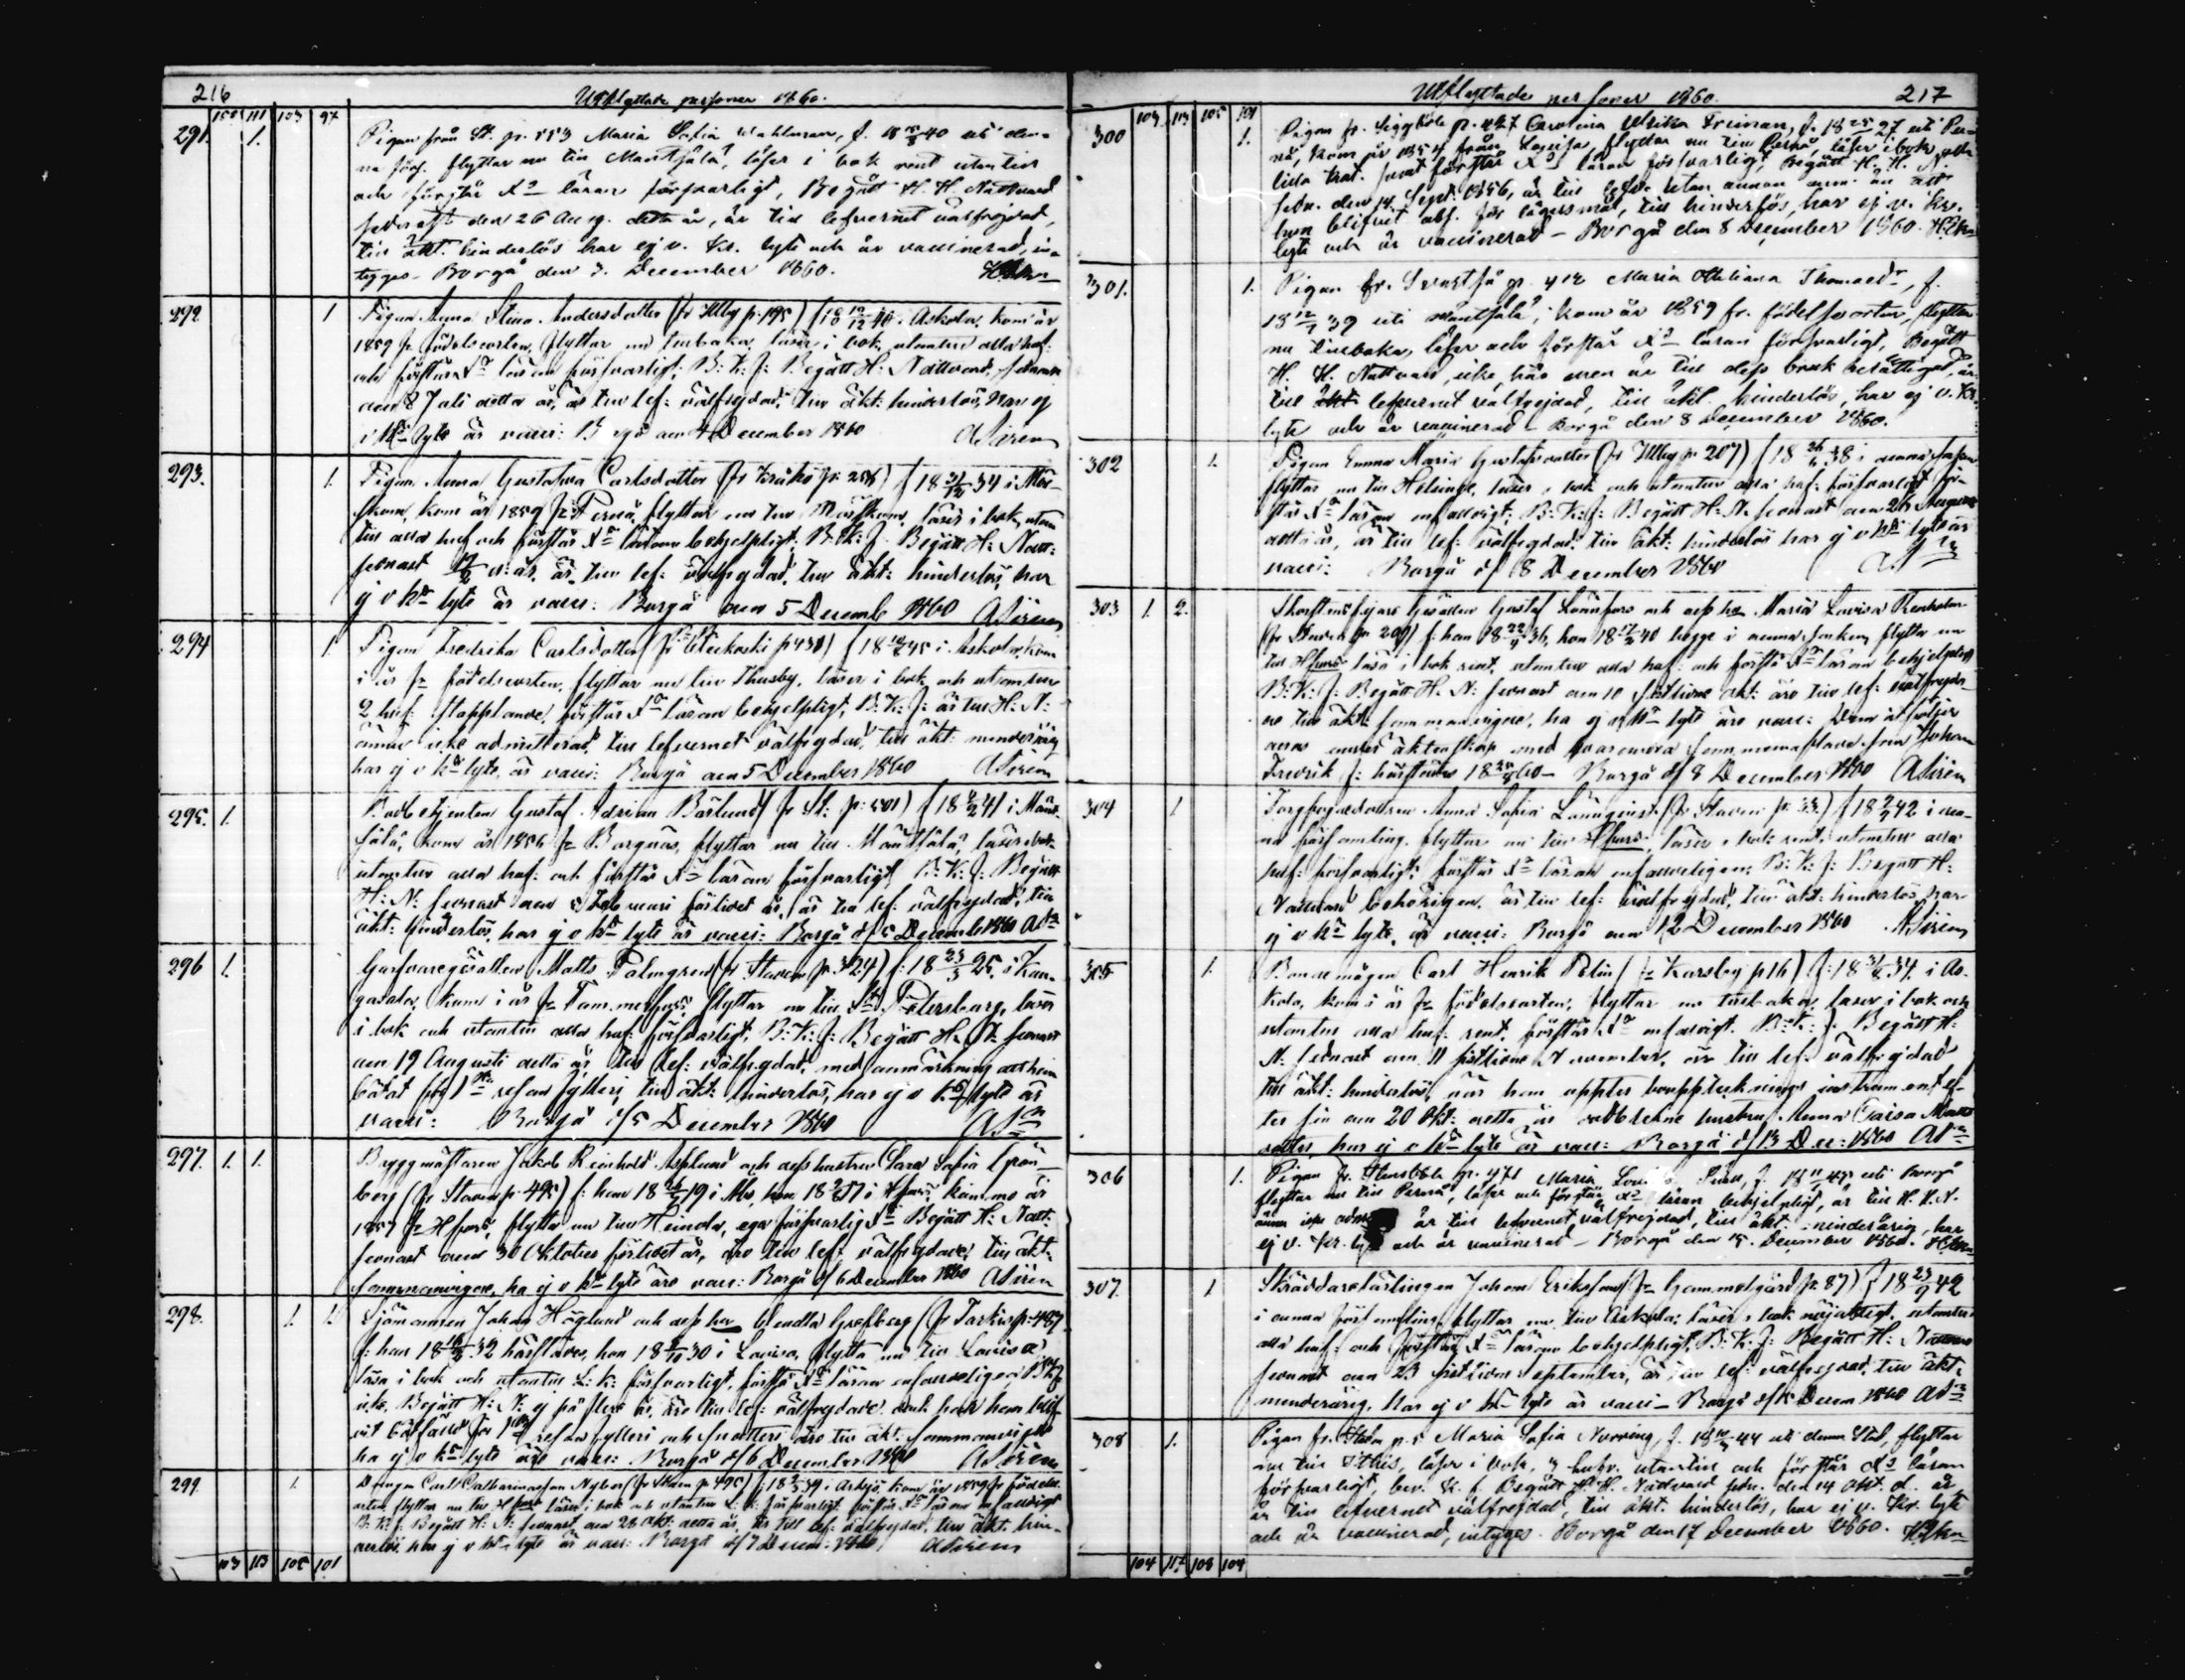 216
Utflyttade personer 1860.
100 111 103 97
291. 1. Pigan från St. p. 553 Maria Sofia f. 18 40 uti den-
na förs. flyttar nu till Mäntsälä, läser i bok rent utantill
och förstår X:s läran försvarligt, Begått H. H. Nattvard
sednast den 26 Aug. detta år, är till lefvernet välfrejdad,
till äkt. hinderlös har ej v. kr. lyte och är vaccinerad, in-
tyges. Borgå den 3. December 1860.
292 1 Pigan Anna Stina Andersdotter (fr Illby p: 195) f 18 19/12 40 i Askola, kom år
1859 fr födelseorten, flyttar nu tillbaka, läser i bok utantill alla huf:
och förstår X:s läran försvarligt, B: K: f: Begått H: Nattvard, sednast
den 8 Juli detta år, är till lef: välfrejdad, till äkt: hinderlös, har ej
v kr lyte är vacci: Borgå den 4 December 1860 ASiren
293. 1. Pigan Anna Gustafva Carlsdotter (fr Kråkö p: 256) f 18 31/12 34 i Mör-
skom, kom år 1859 fr Pernå, flyttar nu till Mörskom, läser i bok, utan
till alla huf och förstår X:s läran behjelpligt, B: K: f. Begått H: Natt:
sednast d: år, är till lef: välfrejdad, till äkt: hinderlös, har
ej v kr lyte är vacci: Borgå den 5 Decemb 1860 ASiren
294 1 Pigan Fredrika Carlsdotter p 430) f 18 45 i Askola, kom
i år fr födelseorten, flyttar nu till Thusby, läser i bok och utantill
2 huf: stapplande, förstår X:s läran behjelpligt, B: K: f: är till H: N:
ännu icke admitterad, till lefvernet välfrejdad, till äkt: minderårig
har ej v kr lyte, är vacci: Borgå den 5 December 1860 ASiren
295. 1. Gustaf Adrian Bärlund (fr St: p: 501) f 18 41 i Mänt-
sälä, kom år 1856 fr Borgnäs, flyttar nu till Mäntsälä, läser i bok
utantill alla huf: och förstår X:s läran försvarligt B: K: f: Begått
H: N: sednast den februari förlidet år, är till lef: välfrejdad, till
äkt: hinderlös, har ej v kr lyte är vacci: Borgå d/5 Decemb 1860 ASn
296 1. Garfvaregesällen Matts Palmgren (fr Staden p 324) f: 18 23/3 25 i Kan-
gasala, kom i år fr Tammerfors, flyttar nu till St. Petersburg, läser
i bok och utantill alla huf: försvarligt, B: K: f: Begått H. N. sednast
den 19 Augusti detta år, till lef: välfrejdad, med anmärkning att han
bötat för 1:sta resan fylleri, till äkt: hinderlös, har ej v kr lyte är
vacci: Borgå d/5 December 1860 ASn
297. 1. 1. Byggmästaren Jakob Reinhold Asplund och dess hustru Clara Sofia Grön-
berg (fr Staden p: 495) f: han 18 19 i Åbo, hon 18 17 i Hfors, kommo år
1857 fr Hfors, flytta nu till Heinola, ega försvarlig Begått H: Natt:
sednast den 30 Oktober förlidet år, äro till lef: välfrejdade, till äkt:
sammanvigde, ha ej v kr lyte äro vacc: Borgå d/6 December 1860 ASiren
298. 1. 1. Sjömannen Johan Höglund och dess hu Hendla Grefberg (fr Tarkis p: 487
f: han 18 32 härstädes, hon 18 30 i Lovisa, flytta nu till Lovisa
läsa i bok och utantill L: K: försvarligt, förstå X:s läran enfaldeligen B: K: f
icke, Begått H: N: ej på flere år, äro till lef: välfrejdade, dock har han blif-
vit bötfälld för 1:sta resan fylleri och äro till äkt: sammanvigde
ha ej v kr lyte äro vacc: Borgå d/6 December 1860 ASiren
299 1. Drengen Carl Catharinasson Nyberg (fr Staden p 490) f 18 39 i Askola, kom år 1859 fr födelse-
orten, flyttar nu till Hfors, läser i bok och utantill L: K: försvarligt, förstår X:s läran enfaldigt
B: K: f: Begått H: N: sednast den 28 Okt: detta år, är till lef: välfrejdad, till äkt: hin-
derlös, har ej v kr lyte är vacc: Borgå d/7 Decem: 1860 ASiren
103 113 105 101
Utflyttade personer 1860. 217
103 113 105 101
300 1. Pigan fr. Siggböle p. 427 Carolina Ulrika Friman, f. 18 25 27 uti Per-
nå, kom år 1854 från Lovisa, flyttar nu till Pernå, läser i bok,
lilla kat. samt förstår X:s läran försvarligt, Begått H. H. N.
sedn. den 14. Sept. 1856, är till lefv. utan annan anm: än att
hon blifvit abs. för lägersmål, till hinderlös, har ej v. kr.
lyte och är vaccinerad – Borgå den 8 December 1860.
301. 1. Pigan fr. Svartså p. 412 Maria Thomasd:r, f.
18 12/7 39 uti Mäntsälä, kom år 1859 fr. födelseorten, flyttar
nu tillbaka, läser och förstår X:s läran försvarligt, Begått
H. H. Nattvard, icke här men är till dess bruk berättigad, är
till lefvernet välfrejdad, till äkt. hinderlös, har ej v. kr.
lyte och är vaccinerad – Borgå den 8 December 1860.
302 1. Pigan Emma Maria Gustafsdotter (fr Illby p 207) f 18 38 i denna socken
flyttar nu till Helsinge, läser i bok och utantill alla huf: försvarligt för-
står X:s läran enfaldigt, B: K: f: Begått H: N. sednast den 26 Augusti
detta år, är till lef: välfrejdad, till äkt: hinderlös har ej v kr lyte är
vacci: Borgå d/8 December 1860
303 1. 2. Skorstensfejare Gesällen Gustaf Lönnfors och dess hu Maria Lovisa Renholm
p. 209) f: han 18 22 36, hon 18 17 40 begge i denna socken, flytta nu
till Hfors läsa i bok rent, utantill alla huf: och förstå X:s läran behjelpligt
B: K: f: Begått H: N: sednast den 10 sistlidne Okt: äro till lef: välfrejda-
de till äkt: sammanvigde, ha ej v kr lyte äro vacc: Dem åtföljer
deras under äktenskap med hvarandra sammanaflade son Johan
Fredrik f: härstädes 18 60 – Borgå d/8 December 1860 ASiren
304 1 Anna Sofia Lönnqvist (fr Staden p: 33) f 18 42 i den-
na församling. flyttar nu till Hfors, läser i bok rent, utantill alla
huf: försvarligt, förstår X:s läran enfaldeligen, B: K: f: Begått H:
Nattvard behörigen, är till lef: välfrejdad, till äkt: hinderlös, har
ej v kr lyte, är vacci: Borgå den 12 December 1860 ASiren
305 1. Bondemågen Carl Henrik Pelin (fr Karsby p 16) f: 18 34 i As-
kola, kom i år fr födelseorten, flyttar nu tillbaka, läser i bok och
utantill alla huf: rent, förstår X:s enfaldigt. B: K: f. Begått H:
N: sednast den 11 sistlidne November, är till lef: välfrejdad
till äkt: hinderlös, när han uppter bouppteckningsinstrument ef-
ter sin den 20 Okt: detta år aflidne hustru Anna Caisa Matts
dotter, har ej v kr lyte är vacc: Borgå d/13 Dec: 1860 ASn
306 1. Pigan fr. Stensböle p. 471 Maria Lovisa f. 18 uti Borgå
flyttar nu till Pernå, läser och förstår X:s läran behjelpligt, är till H. H. N.
ännu icke är till lefvernet välfrejdad, till äkt. minderårig, har
ej v. kr. lyte och är vaccinerad – Borgå den 15. December 1860.
307. 1 Skräddarelärlingen Johan Eriksson (fr Gammelgård p. 87) f 18 23 42
i denna församling flyttar nu till Askola, läser i bok nöjaktigt, utantill
alla huf: och förstår X:s läran behjelpligt, B: K. f: Begått H: Nattvard
sednast den 23 sistlidne September, är till lef: välfrejdad, till äkt:
minderårig, har ej v kr lyte är vacci – Borgå d/15 Decem 1860 ASn
308 1. Pigan fr. Staden p. Maria Sofia Norring, f. 18 44 uti denna Stad, flyttar
nu till Sibbo, läser i bok, 5 hufv. utantill och förstår X:s läran
försvarligt, bev. K. f. Begått H. H. Nattvard sedn. den 14 Okt. d. år,
är till lefvernet välfrejdad, till äkt. hinderlös, har ej v. kr. lyte
och är vaccinerad, intyges. Borgå den 17 December 1860.
104 117 108 104